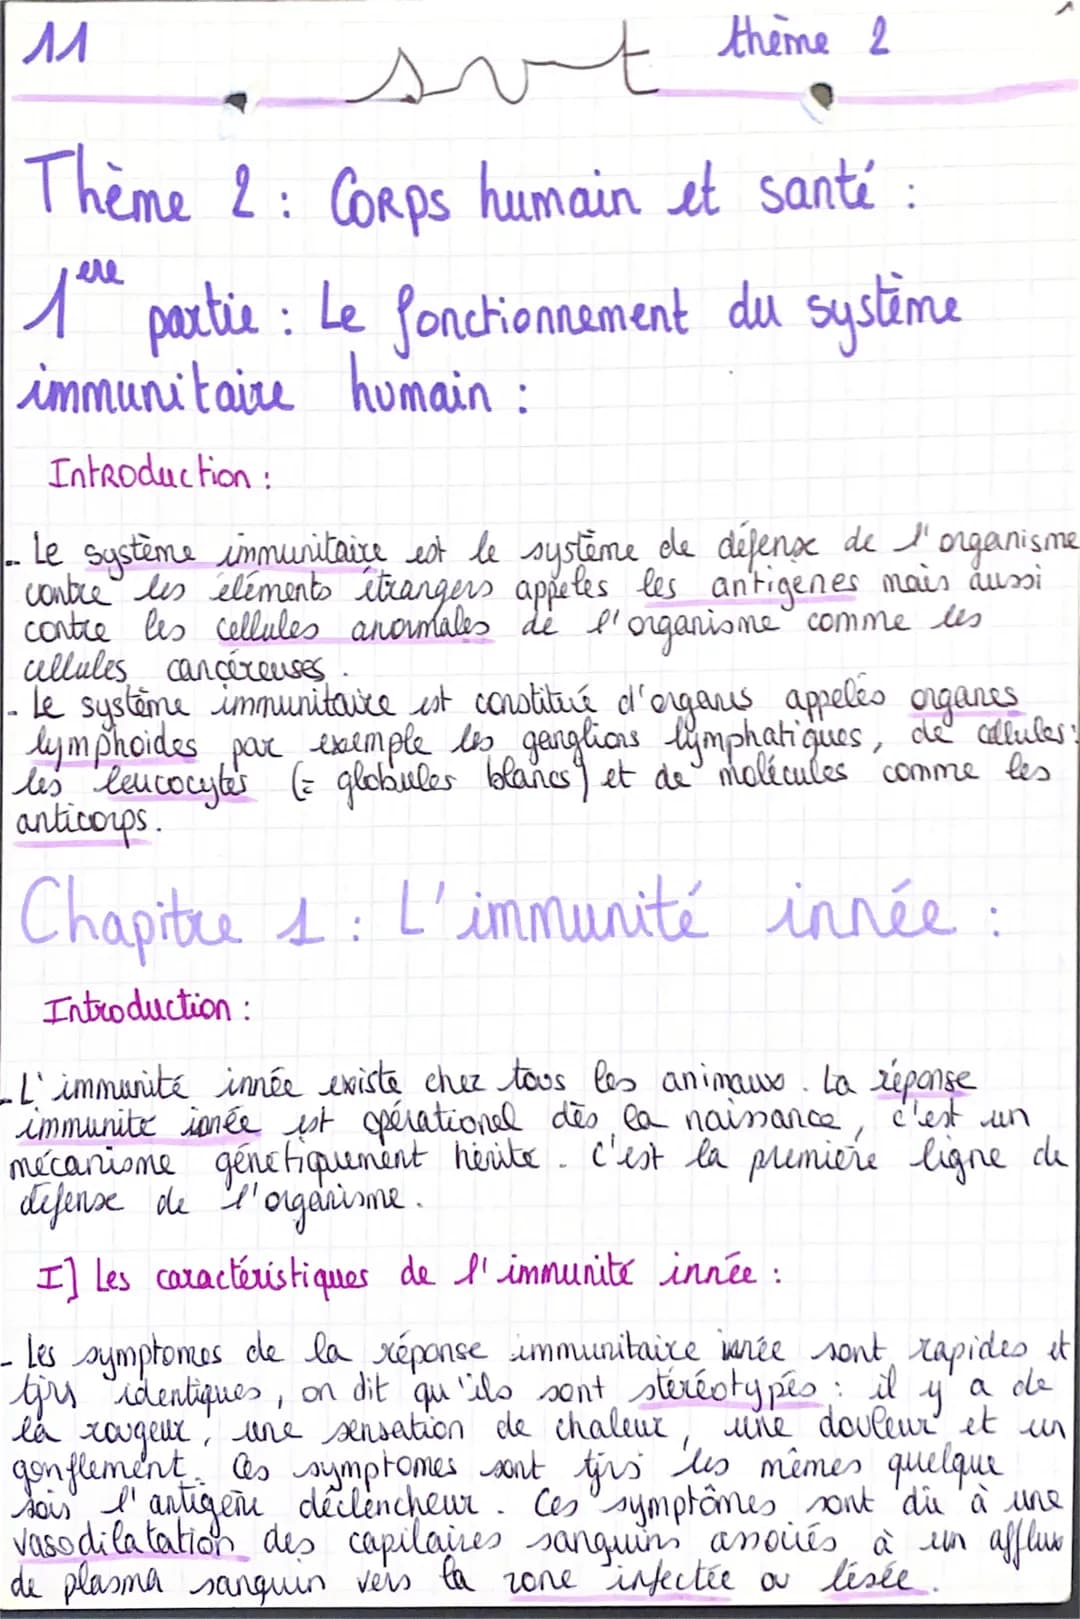 11 svt thème 2
Thème 2 : Corps humain et santé :
1ère partie : Le fonctionnement du système
immunitaire humain :
Introduction :
- Le système immunitaire est le système de défense de l'organisme
contre les éléments étrangers appelés les antigènes mais aussi
contre les cellules anormales de l'organisme comme les
cellules cancéreuses.
- Le système immunitaire est constitué d'organes appelés organes
lymphoïdes par exemple les ganglions lymphatiques, de cellules :
les leucocytes (= globules blancs) et de molécules comme les
anticorps.
Chapitre 1 : L'immunité innée :
Introduction :
- L'immunité innée existe chez tous les animaux. La réponse
immunité innée est opérationel dès la naissance, c'est un
mécanisme génétiquement hérité. c'est la première ligne de
défense de l'organisme.
I] Les caractéristiques de l'immunité innée :
- Les symptomes de la réponse immunitaire innée sont rapides et
tjrs identiques, on dit qu'ils sont stéréotypés : il y a de
la rougeur, une sensation de chaleur, une douleur et un
gonflement. Ces symptomes sont tjrs les mêmes quelque
sois l'antigène déclencheur. Ces symptômes sont dû à une
vasodilatation des capilaires sanguins associés à un afflux
de plasma sanguin vers la zone infectée ou lésée.